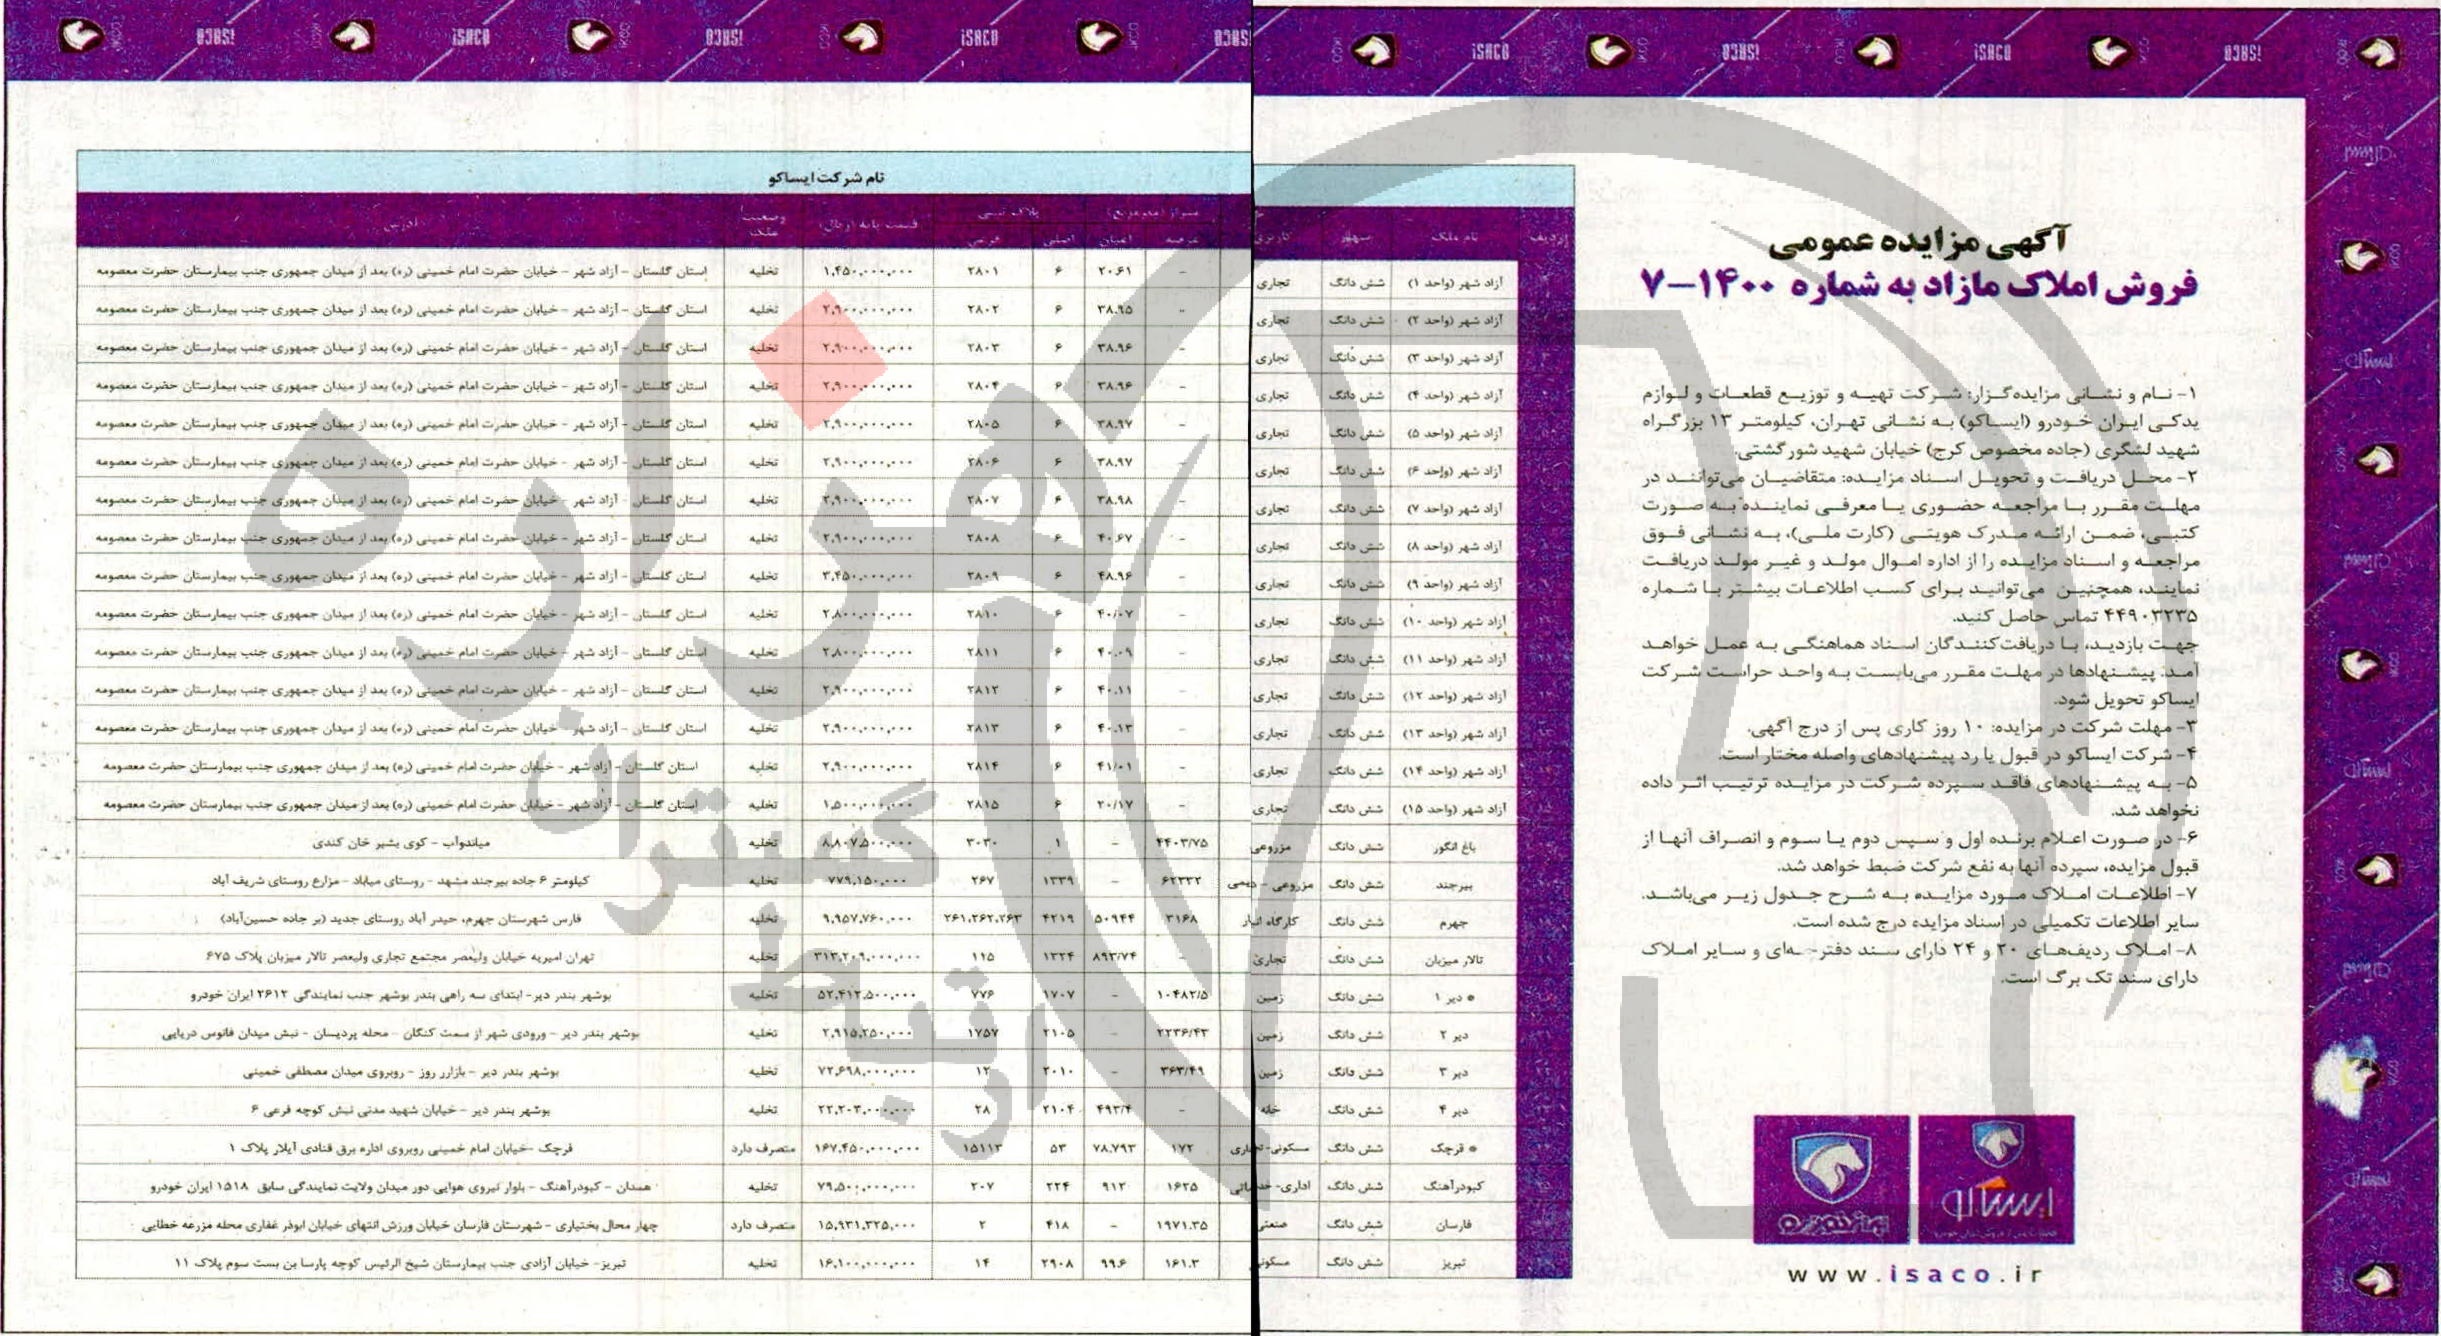 آگهی مزایده عمومی
فروش املاک مازاد به شماره ۱۴۰۰–۷
۱- نـام و نشـانی مزایده‌گـزار: شـرکت تهیـه و توزیـع قطعـات و لـوازم
یدکـی ایـران خـودرو (ایسـاکو) بـه نشـانی تهـران، کیلومتـر ۱۳ بزرگـراه
شهید لشگری (جاده مخصوص کرج) خیابان شهید شورگشتی.
۲- محـل دریافـت و تحویـل اسـناد مزایـده: متقاضیـان می‌تواننـد در
مهلـت مقـرر بـا مراجعـه حضـوری یـا معرفـی نماینـده بـه صـورت
کتبـی، ضمـن ارائـه مـدرک هویتـی (کارت ملـی)، بـه نشـانی فـوق
مراجعـه و اسـناد مزایـده را از اداره امـوال مولـد و غیـر مولـد دریافـت
نماینـد، همچنیـن می‌توانیـد بـرای کسـب اطلاعـات بیشـتر بـا شـماره
۴۴۹۰۳۲۳۵ تماس حاصل کنید.
جهـت بازدیـد، بـا دریافت‌کننـدگان اسـناد هماهنگـی بـه عمـل خواهـد
آمـد. پیشـنهادها در مهلـت مقـرر می‌بایسـت بـه واحـد حراسـت شـرکت
ایساکو تحویل شود.
۳- مهلت شرکت در مزایده: ۱۰ روز کاری پس از درج آگهی.
۴- شرکت ایساکو در قبول یا رد پیشنهادهای واصله مختار است.
۵- بـه پیشـنهادهای فاقـد سـپرده شـرکت در مزایـده ترتیـب اثـر داده
نخواهد شد.
۶- در صـورت اعـلام برنـده اول و سـپس دوم یـا سـوم و انصـراف آنهـا از
قبول مزایده، سپرده آنها به نفع شرکت ضبط خواهد شد.
۷- اطلاعـات امـلاک مـورد مزایـده بـه شـرح جـدول زیـر می‌باشـد.
سایر اطلاعات تکمیلی در اسناد مزایده درج شده است.
۸- امـلاک ردیف‌هـای ۲۰ و ۲۴ دارای سـند دفترچـه‌ای و سـایر امـلاک
دارای سند تک برگ است.
ایساکو
www.isaco.ir
نام شرکت ایساکو
ردیف نام ملک سهم کاربری متراژ (مترمربع) پلاک ثبتی قیمت پایه (ریال) وضعیت ملک آدرس
عرصه اعیان اصلی فرعی
آزاد شهر (واحد ۱) شش دانگ تجاری - ۲۰.۶۱ ۶ ۲۸۰۱ ۱,۴۵۰,۰۰۰,۰۰۰ تخلیه استان گلستان - آزاد شهر - خیابان حضرت امام خمینی (ره) بعد از میدان جمهوری جنب بیمارستان حضرت معصومه
آزاد شهر (واحد ۲) شش دانگ تجاری - ۳۸.۹۵ ۶ ۲۸۰۲ ۲,۹۰۰,۰۰۰,۰۰۰ تخلیه استان گلستان - آزاد شهر - خیابان حضرت امام خمینی (ره) بعد از میدان جمهوری جنب بیمارستان حضرت معصومه
آزاد شهر (واحد ۳) شش دانگ تجاری - ۳۸.۹۶ ۶ ۲۸۰۳ ۲,۹۰۰,۰۰۰,۰۰۰ تخلیه استان گلستان - آزاد شهر - خیابان حضرت امام خمینی (ره) بعد از میدان جمهوری جنب بیمارستان حضرت معصومه
آزاد شهر (واحد ۴) شش دانگ تجاری - ۳۸.۹۶ ۶ ۲۸۰۴ ۲,۹۰۰,۰۰۰,۰۰۰ تخلیه استان گلستان - آزاد شهر - خیابان حضرت امام خمینی (ره) بعد از میدان جمهوری جنب بیمارستان حضرت معصومه
آزاد شهر (واحد ۵) شش دانگ تجاری - ۳۸.۹۷ ۶ ۲۸۰۵ ۲,۹۰۰,۰۰۰,۰۰۰ تخلیه استان گلستان - آزاد شهر - خیابان حضرت امام خمینی (ره) بعد از میدان جمهوری جنب بیمارستان حضرت معصومه
آزاد شهر (واحد ۶) شش دانگ تجاری - ۳۸.۹۷ ۶ ۲۸۰۶ ۲,۹۰۰,۰۰۰,۰۰۰ تخلیه استان گلستان - آزاد شهر - خیابان حضرت امام خمینی (ره) بعد از میدان جمهوری جنب بیمارستان حضرت معصومه
آزاد شهر (واحد ۷) شش دانگ تجاری - ۳۸.۹۸ ۶ ۲۸۰۷ ۲,۹۰۰,۰۰۰,۰۰۰ تخلیه استان گلستان - آزاد شهر - خیابان حضرت امام خمینی (ره) بعد از میدان جمهوری جنب بیمارستان حضرت معصومه
آزاد شهر (واحد ۸) شش دانگ تجاری - ۴۰.۶۷ ۶ ۲۸۰۸ ۲,۹۰۰,۰۰۰,۰۰۰ تخلیه استان گلستان - آزاد شهر - خیابان حضرت امام خمینی (ره) بعد از میدان جمهوری جنب بیمارستان حضرت معصومه
آزاد شهر (واحد ۹) شش دانگ تجاری - ۴۸.۹۶ ۶ ۲۸۰۹ ۳,۴۵۰,۰۰۰,۰۰۰ تخلیه استان گلستان - آزاد شهر - خیابان حضرت امام خمینی (ره) بعد از میدان جمهوری جنب بیمارستان حضرت معصومه
آزاد شهر (واحد ۱۰) شش دانگ تجاری - ۴۰/۰۷ ۶ ۲۸۱۰ ۲,۸۰۰,۰۰۰,۰۰۰ تخلیه استان گلستان - آزاد شهر - خیابان حضرت امام خمینی (ره) بعد از میدان جمهوری جنب بیمارستان حضرت معصومه
آزاد شهر (واحد ۱۱) شش دانگ تجاری - ۴۰.۰۹ ۶ ۲۸۱۱ ۲,۸۰۰,۰۰۰,۰۰۰ تخلیه استان گلستان - آزاد شهر - خیابان حضرت امام خمینی (ره) بعد از میدان جمهوری جنب بیمارستان حضرت معصومه
آزاد شهر (واحد ۱۲) شش دانگ تجاری - ۴۰.۱۱ ۶ ۲۸۱۲ ۲,۹۰۰,۰۰۰,۰۰۰ تخلیه استان گلستان - آزاد شهر - خیابان حضرت امام خمینی (ره) بعد از میدان جمهوری جنب بیمارستان حضرت معصومه
آزاد شهر (واحد ۱۳) شش دانگ تجاری - ۴۰.۱۳ ۶ ۲۸۱۳ ۲,۹۰۰,۰۰۰,۰۰۰ تخلیه استان گلستان - آزاد شهر - خیابان حضرت امام خمینی (ره) بعد از میدان جمهوری جنب بیمارستان حضرت معصومه
آزاد شهر (واحد ۱۴) شش دانگ تجاری - ۴۱/۰۱ ۶ ۲۸۱۴ ۲,۹۰۰,۰۰۰,۰۰۰ تخلیه استان گلستان - آزاد شهر - خیابان حضرت امام خمینی (ره) بعد از میدان جمهوری جنب بیمارستان حضرت معصومه
آزاد شهر (واحد ۱۵) شش دانگ تجاری - ۲۰/۱۷ ۶ ۲۸۱۵ ۱,۵۰۰,۰۰۰,۰۰۰ تخلیه استان گلستان - آزاد شهر - خیابان حضرت امام خمینی (ره) بعد از میدان جمهوری جنب بیمارستان حضرت معصومه
باغ انگور شش دانگ مزروعی ۴۴۰۳/۷۵ - ۱ ۳۰۳۰ ۸,۸۰۷,۵۰۰,۰۰۰ تخلیه میاندوآب - کوی بشیر خان کندی
بیرجند شش دانگ مزروعی - دیمی ۶۲۳۳۲ - ۱۳۳۹ ۲۶۷ ۷۷۹,۱۵۰,۰۰۰ تخلیه کیلومتر ۶ جاده بیرجند مشهد - روستای میاباد - مزارع روستای شریف آباد
جهرم شش دانگ کارگاه انبار ۳۱۶۸ ۵۰۹۴۴ ۴۲۱۹ ۲۶۱,۲۶۲,۲۶۳ ۹,۹۵۷,۷۶۰,۰۰۰ تخلیه فارس شهرستان جهرم، حیدر آباد روستای جدید (بر جاده حسین‌آباد)
تالار میزبان شش دانگ تجاری - ۸۹۳/۷۴ ۱۳۲۴ ۱۱۵ ۳۱۳,۲۰۹,۰۰۰,۰۰۰ تخلیه تهران امیریه خیابان ولیعصر مجتمع تجاری ولیعصر تالار میزبان پلاک ۶۷۵
* دیر ۱ شش دانگ زمین ۱۰۴۸۲/۵ - ۱۷۰۷ ۷۷۶ ۵۲,۴۱۲,۵۰۰,۰۰۰ تخلیه بوشهر بندر دیر- ابتدای سه راهی بندر بوشهر جنب نمایندگی ۲۶۱۲ ایران خودرو
دیر ۲ شش دانگ زمین ۲۲۳۶/۴۳ - ۲۱۰۵ ۱۷۵۷ ۲,۹۱۵,۲۵۰,۰۰۰ تخلیه بوشهر بندر دیر - ورودی شهر از سمت کنگان - محله پردیسان - نبش میدان فانوس دریایی
دیر ۳ شش دانگ زمین ۳۶۳/۴۹ - ۲۰۱۰ ۱۲ ۷۲,۶۹۸,۰۰۰,۰۰۰ تخلیه بوشهر بندر دیر - بازار روز - روبروی میدان مصطفی خمینی
دیر ۴ شش دانگ خانه - ۴۹۳/۴ ۲۱۰۴ ۲۸ ۲۲,۲۰۳,۰۰۰,۰۰۰ تخلیه بوشهر بندر دیر - خیابان شهید مدنی نبش کوچه فرعی ۶
* قرچک شش دانگ مسکونی- تجاری ۱۷۲ ۷۸.۷۹۳ ۵۳ ۱۵۱۱۳ ۱۶۷,۴۵۰,۰۰۰,۰۰۰ متصرف دارد قرچک -خیابان امام خمینی روبروی اداره برق قنادی آیلار پلاک ۱
کبودرآهنگ شش دانگ اداری- خدماتی ۱۶۲۵ ۹۱۲ ۲۲۴ ۲۰۷ ۷۹,۵۰۰,۰۰۰,۰۰۰ تخلیه همدان - کبودرآهنگ - بلوار نیروی هوایی دور میدان ولایت نمایندگی سابق ۱۵۱۸ ایران خودرو
فارسان شش دانگ صنعتی ۱۹۷۱.۳۵ - ۴۱۸ ۲ ۱۵,۹۳۱,۳۲۵,۰۰۰ متصرف دارد چهار محال بختیاری - شهرستان فارسان خیابان ورزش انتهای خیابان ابوذر غفاری محله مزرعه خطایی
تبریز شش دانگ مسکونی ۱۶۱.۳ ۹۹.۶ ۲۹۰۸ ۱۴ ۱۶,۱۰۰,۰۰۰,۰۰۰ تخلیه تبریز- خیابان آزادی جنب بیمارستان شیخ الرئیس کوچه پارسا بن بست سوم پلاک ۱۱